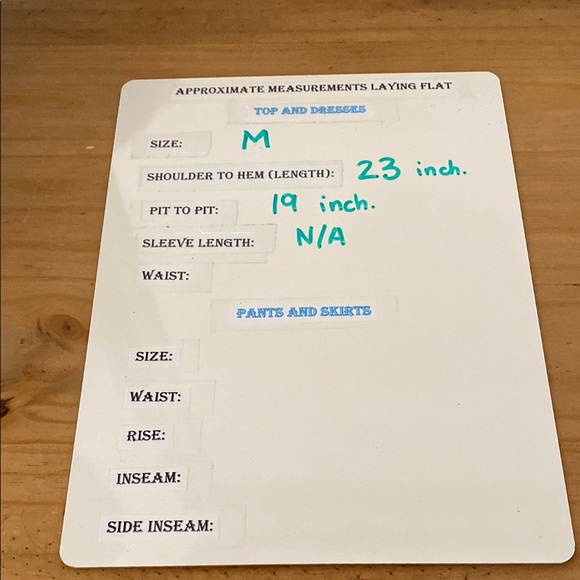 APPROXIMATE MEASUREMENTS LAYING FLAT
TOP AND DRESSES
SIZE: M
SHOULDER TO HEM (LENGTH): 23 inch.
PIT TO PIT: 19 inch.
SLEEVE LENGTH: N/A
WAIST:
PANTS AND SKIRTS
SIZE:
WAIST:
RISE:
INSEAM:
SIDE INSEAM: